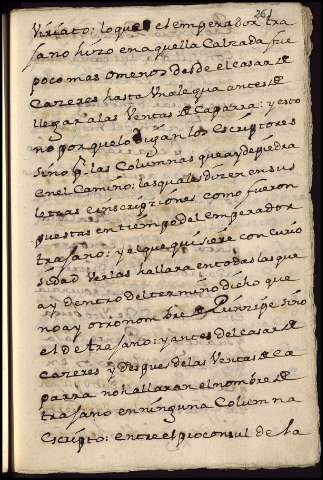 261
Viriato: lo que el emperador tra
jano hizo en aquella Calzada, fue
poco mas o menos desde el casar de
Cazeres hasta Una legua antes de
llegar a las Ventas de Caparra: y esto
no por que lo digan los Escriptores
sino por las Columnas que ay de piedra
en el Camino: las quales dizen en sus
letras e inscriptiones como fueron
puestas en tiempo del Emperador
trajano: y el que quisiere con curio
sidad verlas hallara en todas las que
ay dentro del termino dicho que
no ay otro nombre de Prinzipe sino
el de trajano: y antes del casar de
cazeres y despues de las Ventas de Ca
parra no hallaran el nombre de
trajano en ninguna Columna
Escripto: entre el proconsul de la